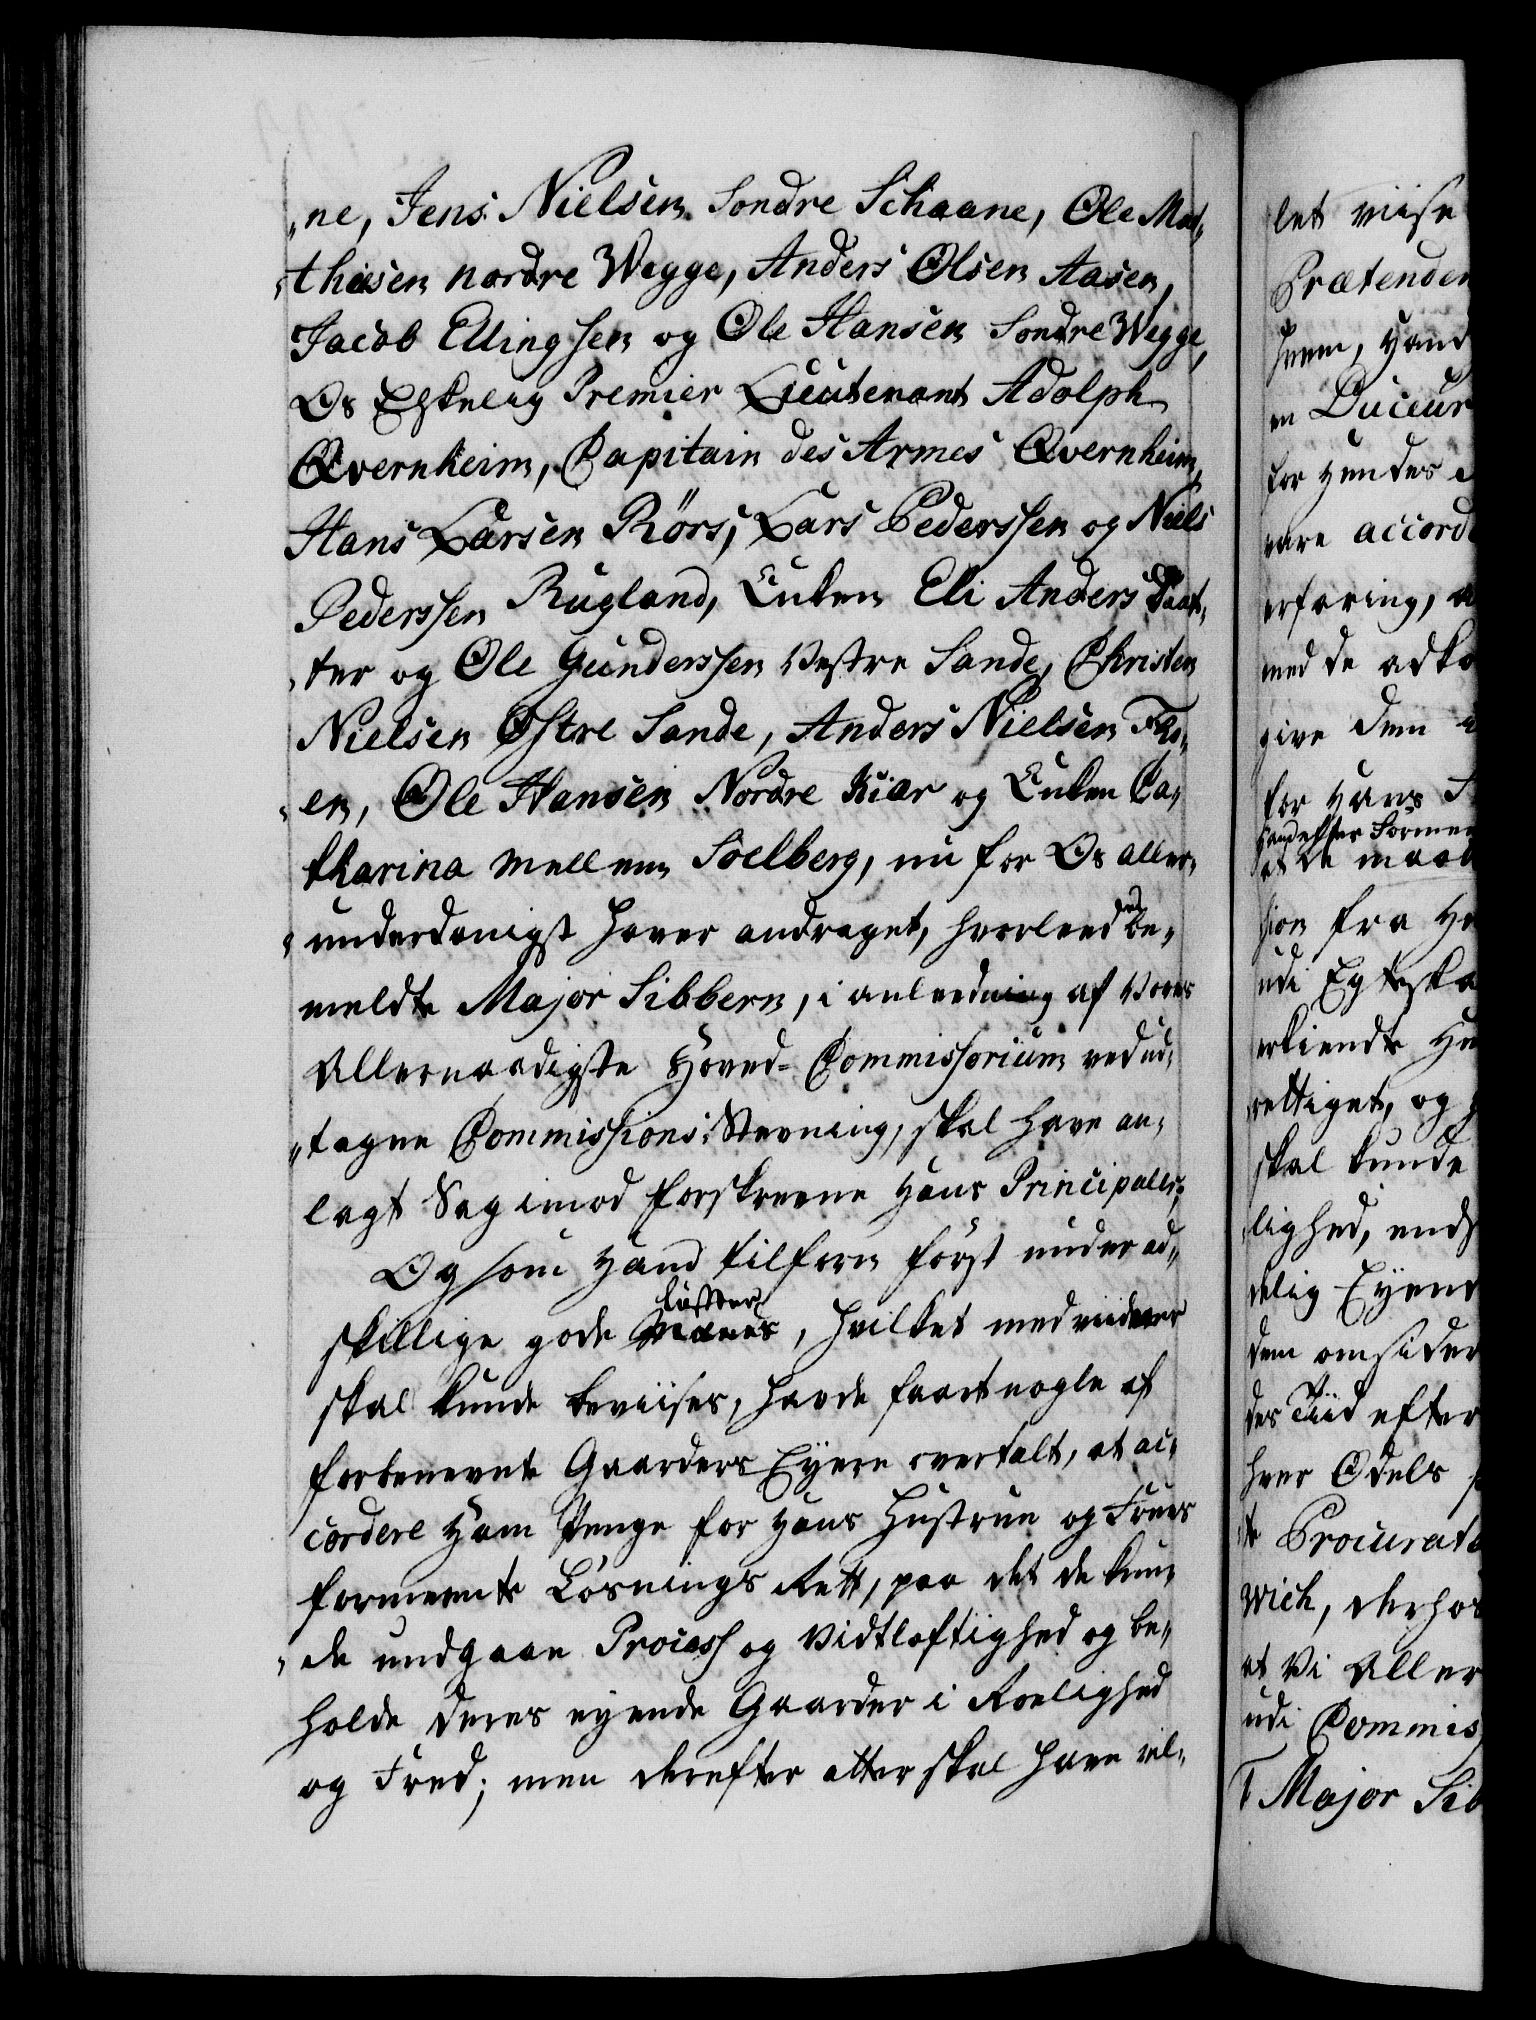 „ne, Jens Nielsen Søndre Schaane, Ole Mat„
„thiesen nordre Wegge, Anders Olsen Aasen,
Jacob Ellingsen og Ole Hansen Søndre Wegge,
Os Elskelig Premier Lieutenant Adolph
Qvernheim, Capitain des Armes Qvernheim,
Hans Larsen Rörs, Lars Pederssen og Niels
Pederssen Rugland, Enken Eli Anders Daat„
„ter og Ole Gunderssen Vestre Sande, Christen
Nielsen Østre Sande, Anders Nielsen Fło„
„en, Ole Hansen Nordre Kiær og Enken Ca„
tharina Mellem Soelberg, nu for Os aller„
„underdanigst haver andraget, hvorleedes be„
meldte Major Sibbern, i anleedning af Vores
Allernaadigste Hoved-Commissorium ved ud„
„tagne Commissions-Stevning, skal have an„
lagt Sag imod forskrevne Hans Principaler,
Og som Hand tilforn först under ad„
skillige gode
skal kunde beviises, havde faaet nogle af
forbenevnte Gaarders Eyere overtalt, at ac„
cordere Ham Penge for Hans Hustrue og Frues
formeente Løsnings Rett, paa det de kun„
„de undgaae Process og Vidtløftighed og be„
holde deres eyende Gaarder i Roelighed
og Fred; men derefter atter skal have vil„
let viise
Prætenden
hvem, Hand
en Duceur
for Hendes
være accord
erfaring, a
med de adko
give dem
for Hans
at de maat
sion fra He
udi Egteska
erkiendte He
rettiget, og
skal kunde
lighed, ends
delig Eyend
dem omsider
des Tiid efter
hver Odels
te Procurato
wich, derhos
at Vi Aller
udi Commis
Major Sib